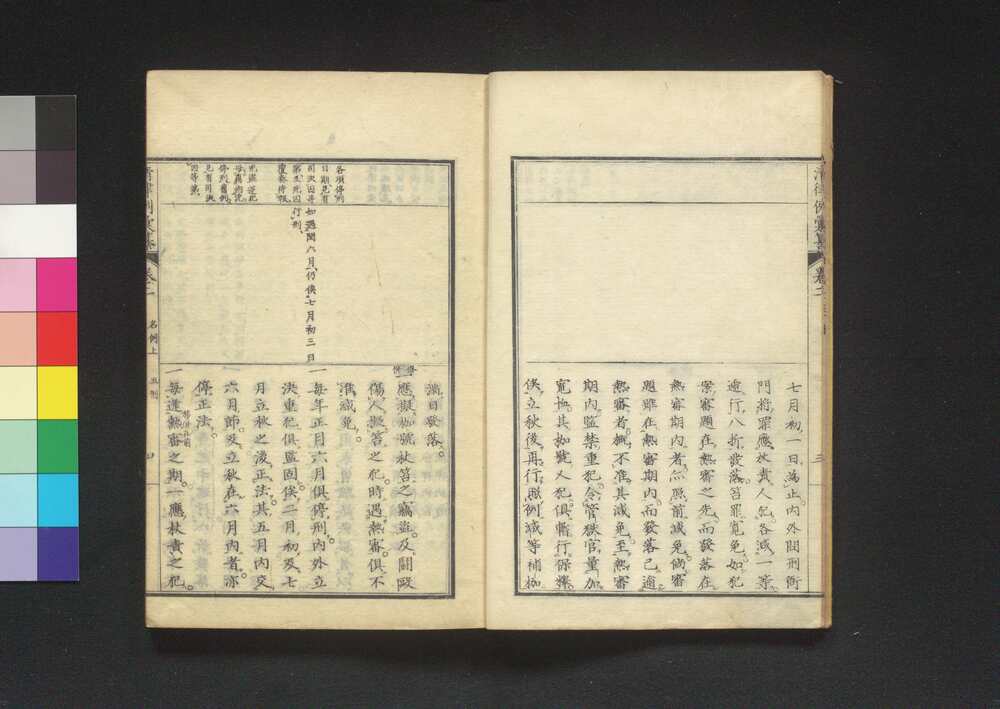 七月初一日為止內外問刑衙
門將罪應杖責人犯各減一等
逓行八折發落笞罪寬免如犯
案審題在熱審之先而發落在
熱審期內者亦照前減免倘審
題雖在熱審期內而發落已逾
熱審者概不准其減免至熱審
期內監禁重犯令管獄官量加
寬恤其枷號人犯俱暫行保釋
俟立秋後再行照例減等補枷
滿日發落
應擬枷號杖笞之竊盜及鬭毆
傷人擬笞之犯時遇熱審俱不
准減免
一每年正月六月俱停刑內外立
決重犯俱監固俟二月初及七
月立秋之後正法其五月內交
六月節及立秋在六月內者亦
停正法
一每逢熱審之期一應杖責之犯
各項停刑
日期見有
司決囚等
第及死囚
覆奏待報
如遇閏六月仍俟七月初三日
行刑
停刑舊例
見有司決
囚等第
清律例彙纂
卷二
名例上
五刑
四
三